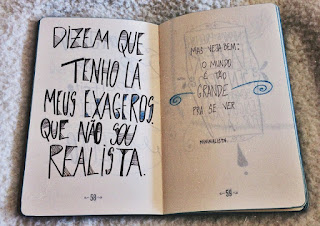 DIZEM QUE
TENHO LÁ
MEUS EXAGEROS,
QUE NÃO SOU
REALISTA.
58
MAS VEJA BEM:
O MUNDO
É TÃO
GRANDE
PRA SE VER
MINIMALISTA.
59